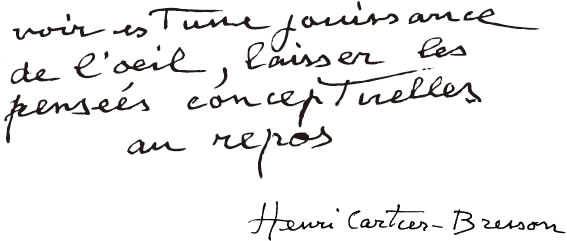 voir est une jouissance
de l'oeil, laisser les
pensées conceptuelles
au repos
Henri Cartier-Bresson